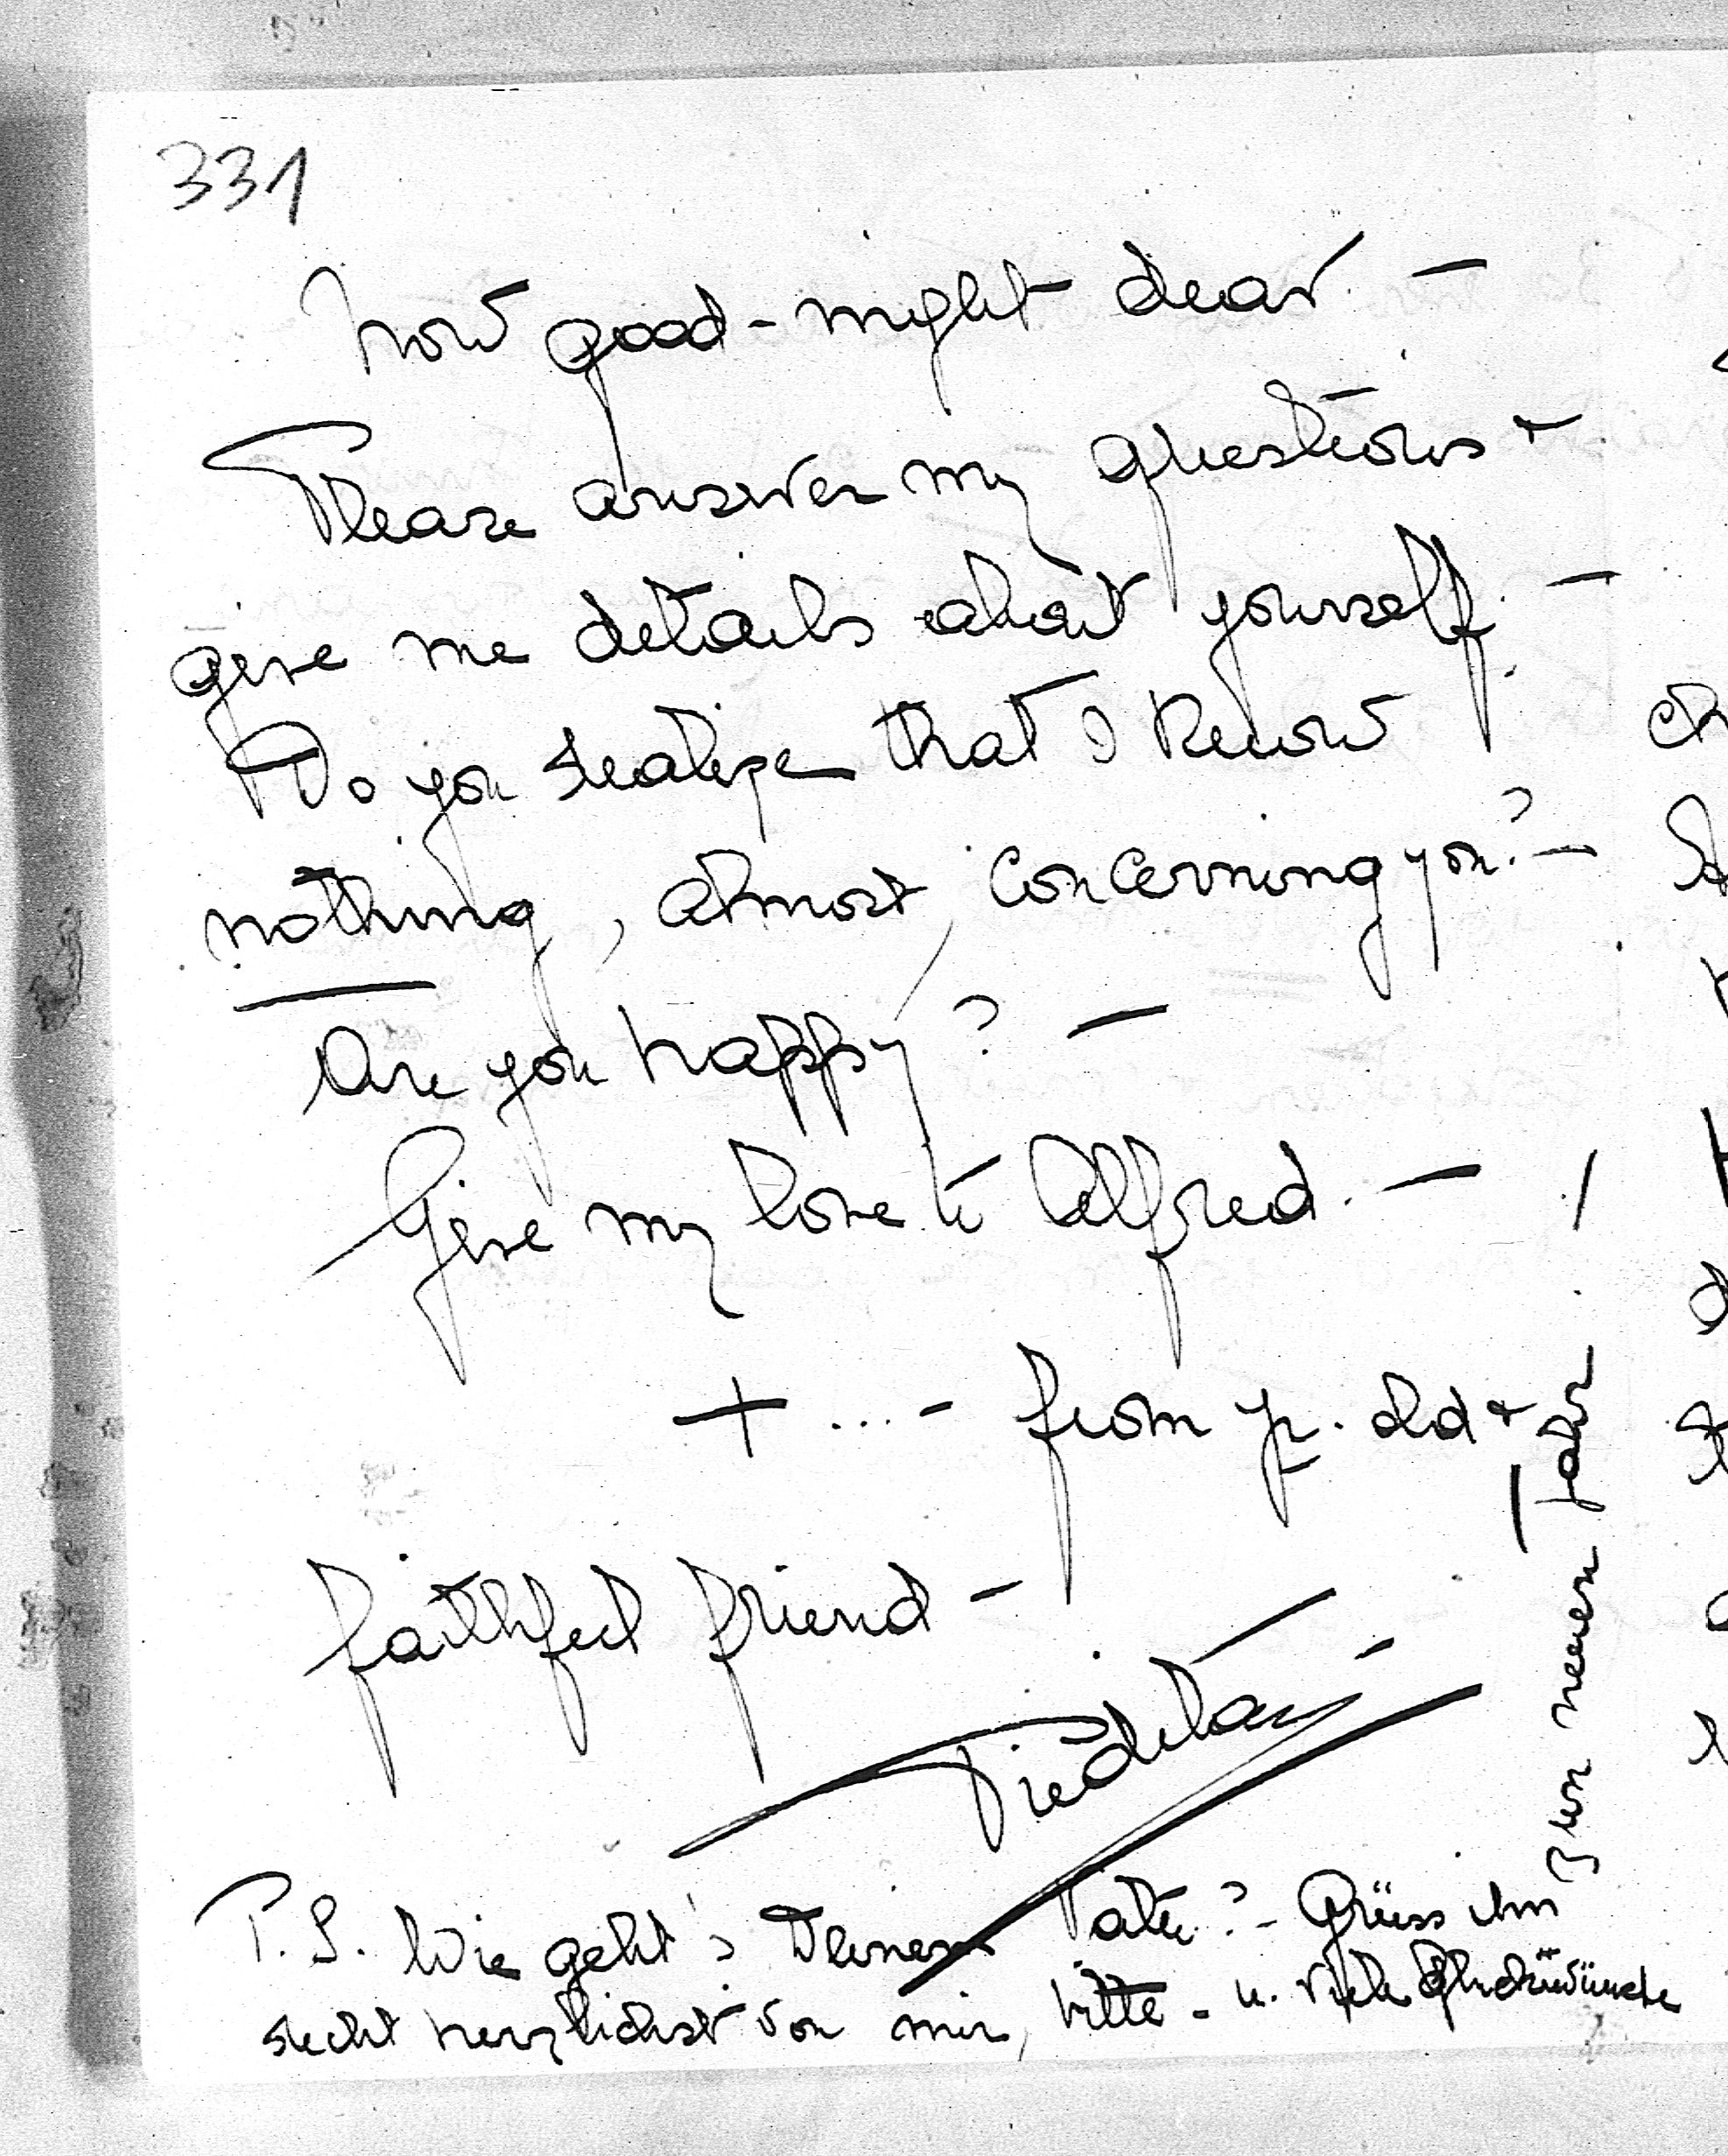 331
Now good-night dear. —
Please answer my questions +
give me details about yourself. —
Do you realize that I know
nothing, almost, concerning you? —
Are you happy? —
Give my love to Alfred. —
+ ... - from yr. old +
faithful friend -
P.S. Wie geht's Deinem Vater? - Grüss ihn
recht herzlichst von mir, bitte - u. viele Glückwünsche
zum neuen Jahr !